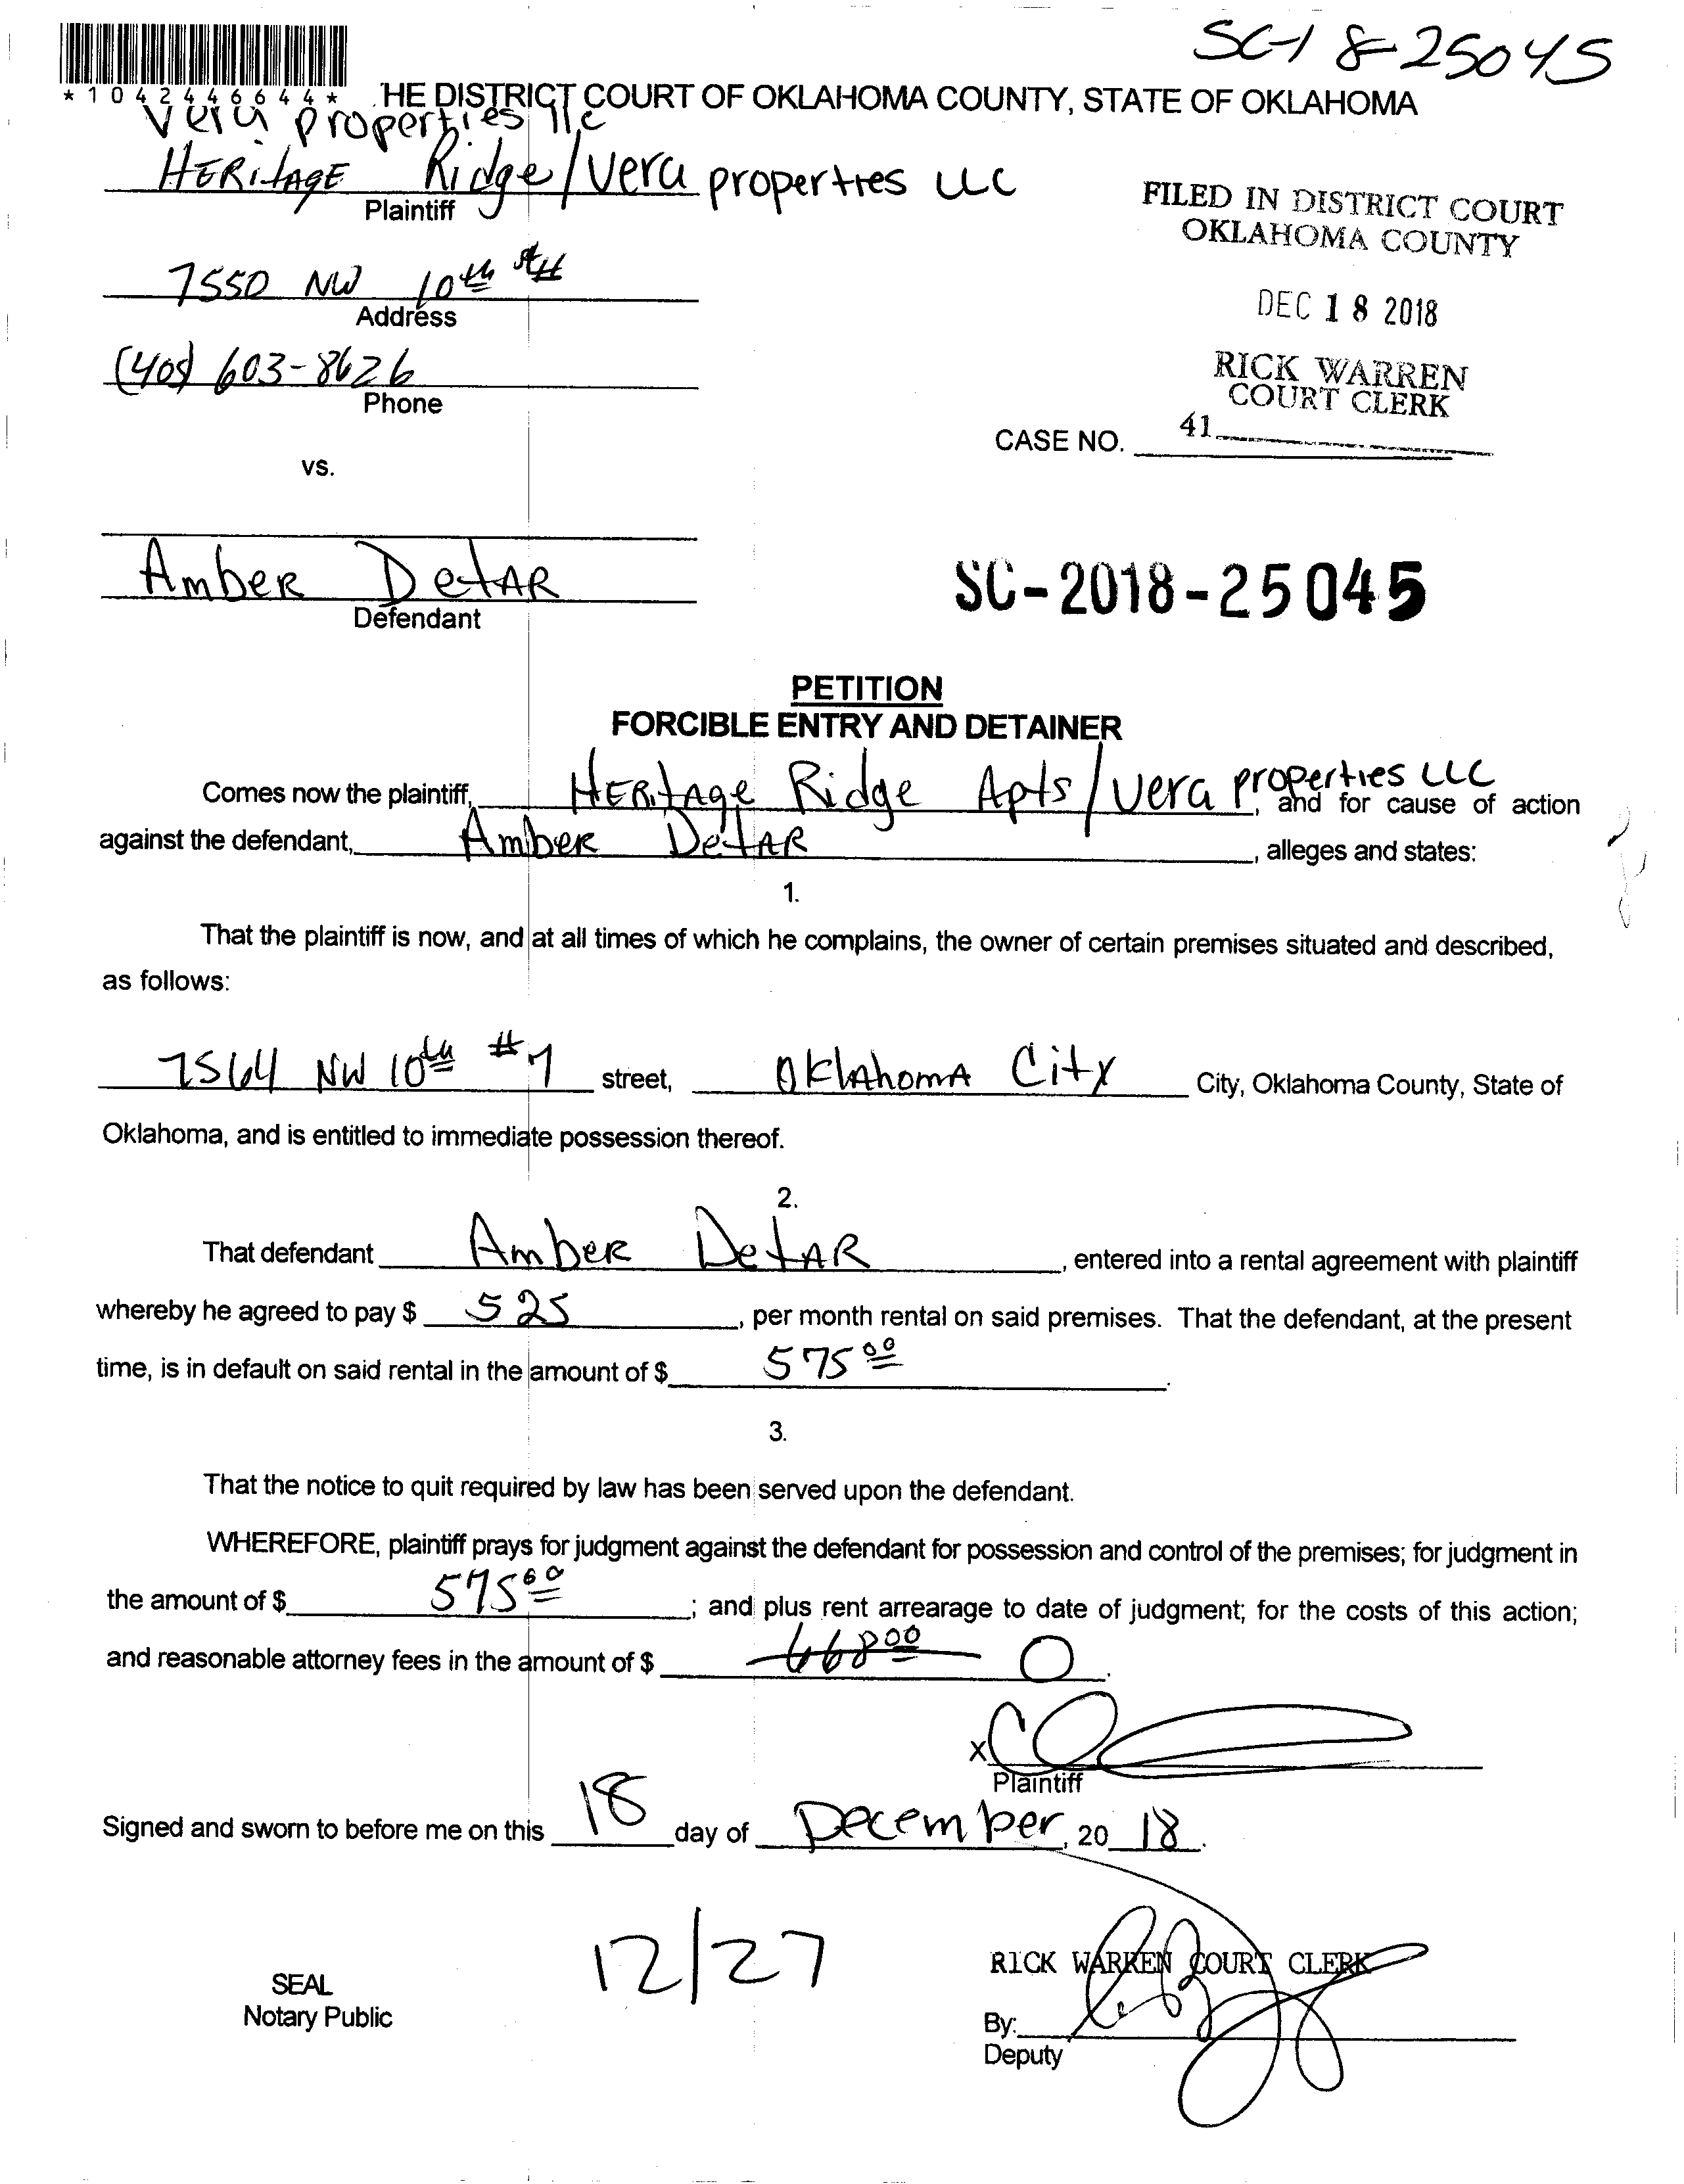 SC-18-25045
*1042446644*
HE DISTRICT COURT OF OKLAHOMA COUNTY, STATE OF OKLAHOMA
Vera properties llc
HERitAGE Ridge/Vera properties LLC
Plaintiff
FILED IN DISTRICT COURT
OKLAHOMA COUNTY
7550 NW 10th
Address
DEC 18 2018
(405) 603-8626
Phone
RICK WARREN
COURT CLERK
CASE NO. 41
vs.
Amber DetAR
Defendant
SC-2018-25045
PETITION
FORCIBLE ENTRY AND DETAINER
Comes now the plaintiff, HERitAge Ridge Apts/Vera properties LLC, and for cause of action
against the defendant, Amber DetAR, alleges and states:
1.
That the plaintiff is now, and at all times of which he complains, the owner of certain premises situated and described,
as follows:
7564 NW 10th #7 street, OklAhomA City City, Oklahoma County, State of
Oklahoma, and is entitled to immediate possession thereof.
2.
That defendant Amber DetAR, entered into a rental agreement with plaintiff
whereby he agreed to pay $ 525, per month rental on said premises. That the defendant, at the present
time, is in default on said rental in the amount of $ 575 00.
3.
That the notice to quit required by law has been served upon the defendant.
WHEREFORE, plaintiff prays for judgment against the defendant for possession and control of the premises; for judgment in
the amount of $ 575 00; and plus rent arrearage to date of judgment; for the costs of this action;
and reasonable attorney fees in the amount of $ 668 00 0.
x
Plaintiff
Signed and sworn to before me on this 18 day of December, 20 18.
12/27
RICK WARREN COURT CLERK
SEAL
Notary Public
By:
Deputy